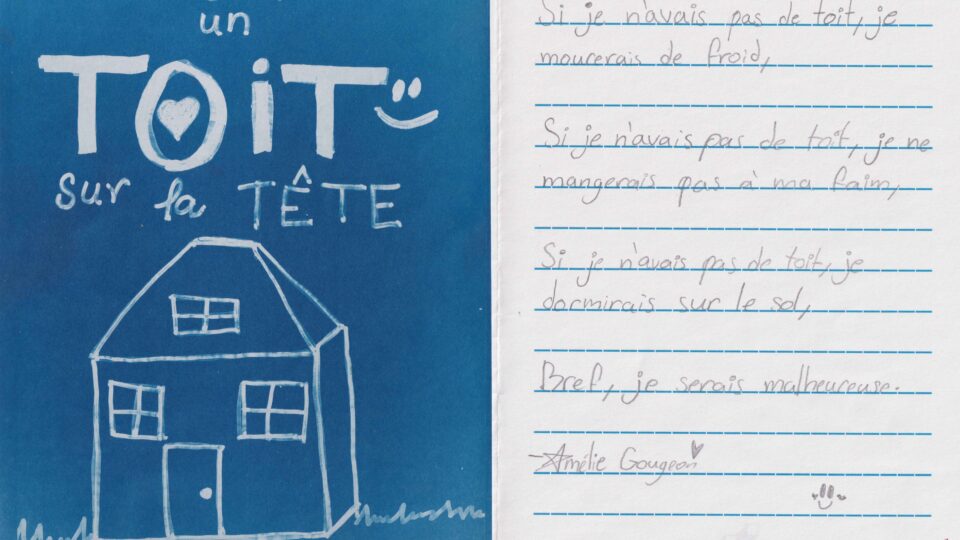 un
TOiT
sur la TÊTE
Si je n'avais pas de toit, je
mourerais de froid,
Si je n'avais pas de toit, je ne
mangerais pas à ma faim,
Si je n'avais pas de toit, je
dormirais sur le sol,
Bref, je serais malheureuse.
-Amélie Gougeon